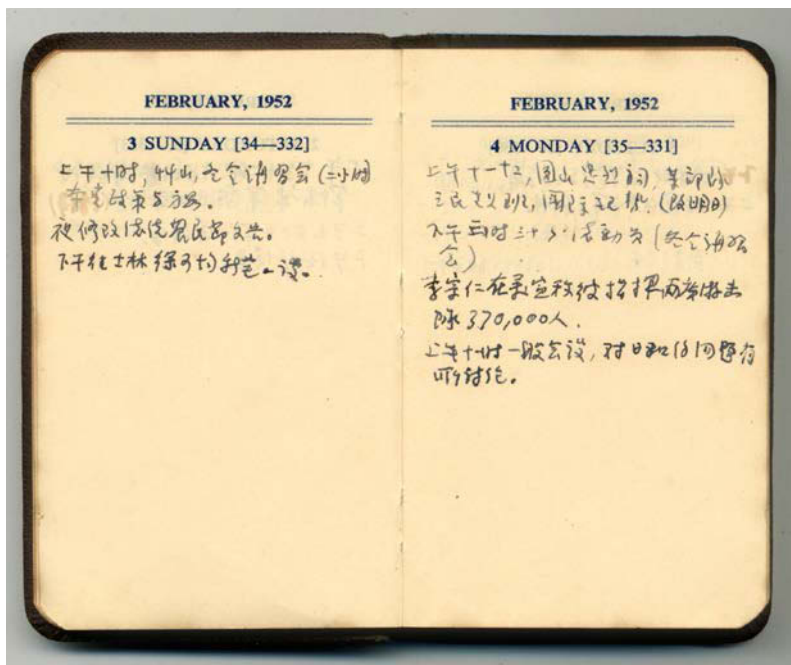 FEBRUARY, 1952
3 SUNDAY [34—332]
上午十时,草山,冬令讲习会(二小时
政策与方案。
夜修改告农民部文告。
下午往士林一谈。
FEBRUARY, 1952
4 MONDAY [35—331]
上午十一十二,圆山忠烈祠,
三民主义班,(改明日)
下午三时三十分活动员(冬令讲习
会)
李宗仁在美宣称彼指挥两广游击
队370,000人。
上午十时一般会议,对日和约问题有
所讨论。